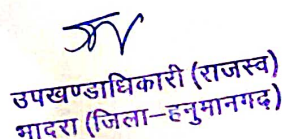 उपखण्डाधिकारी (राजस्व)
भादरा (जिला–हनुमानगढ़)